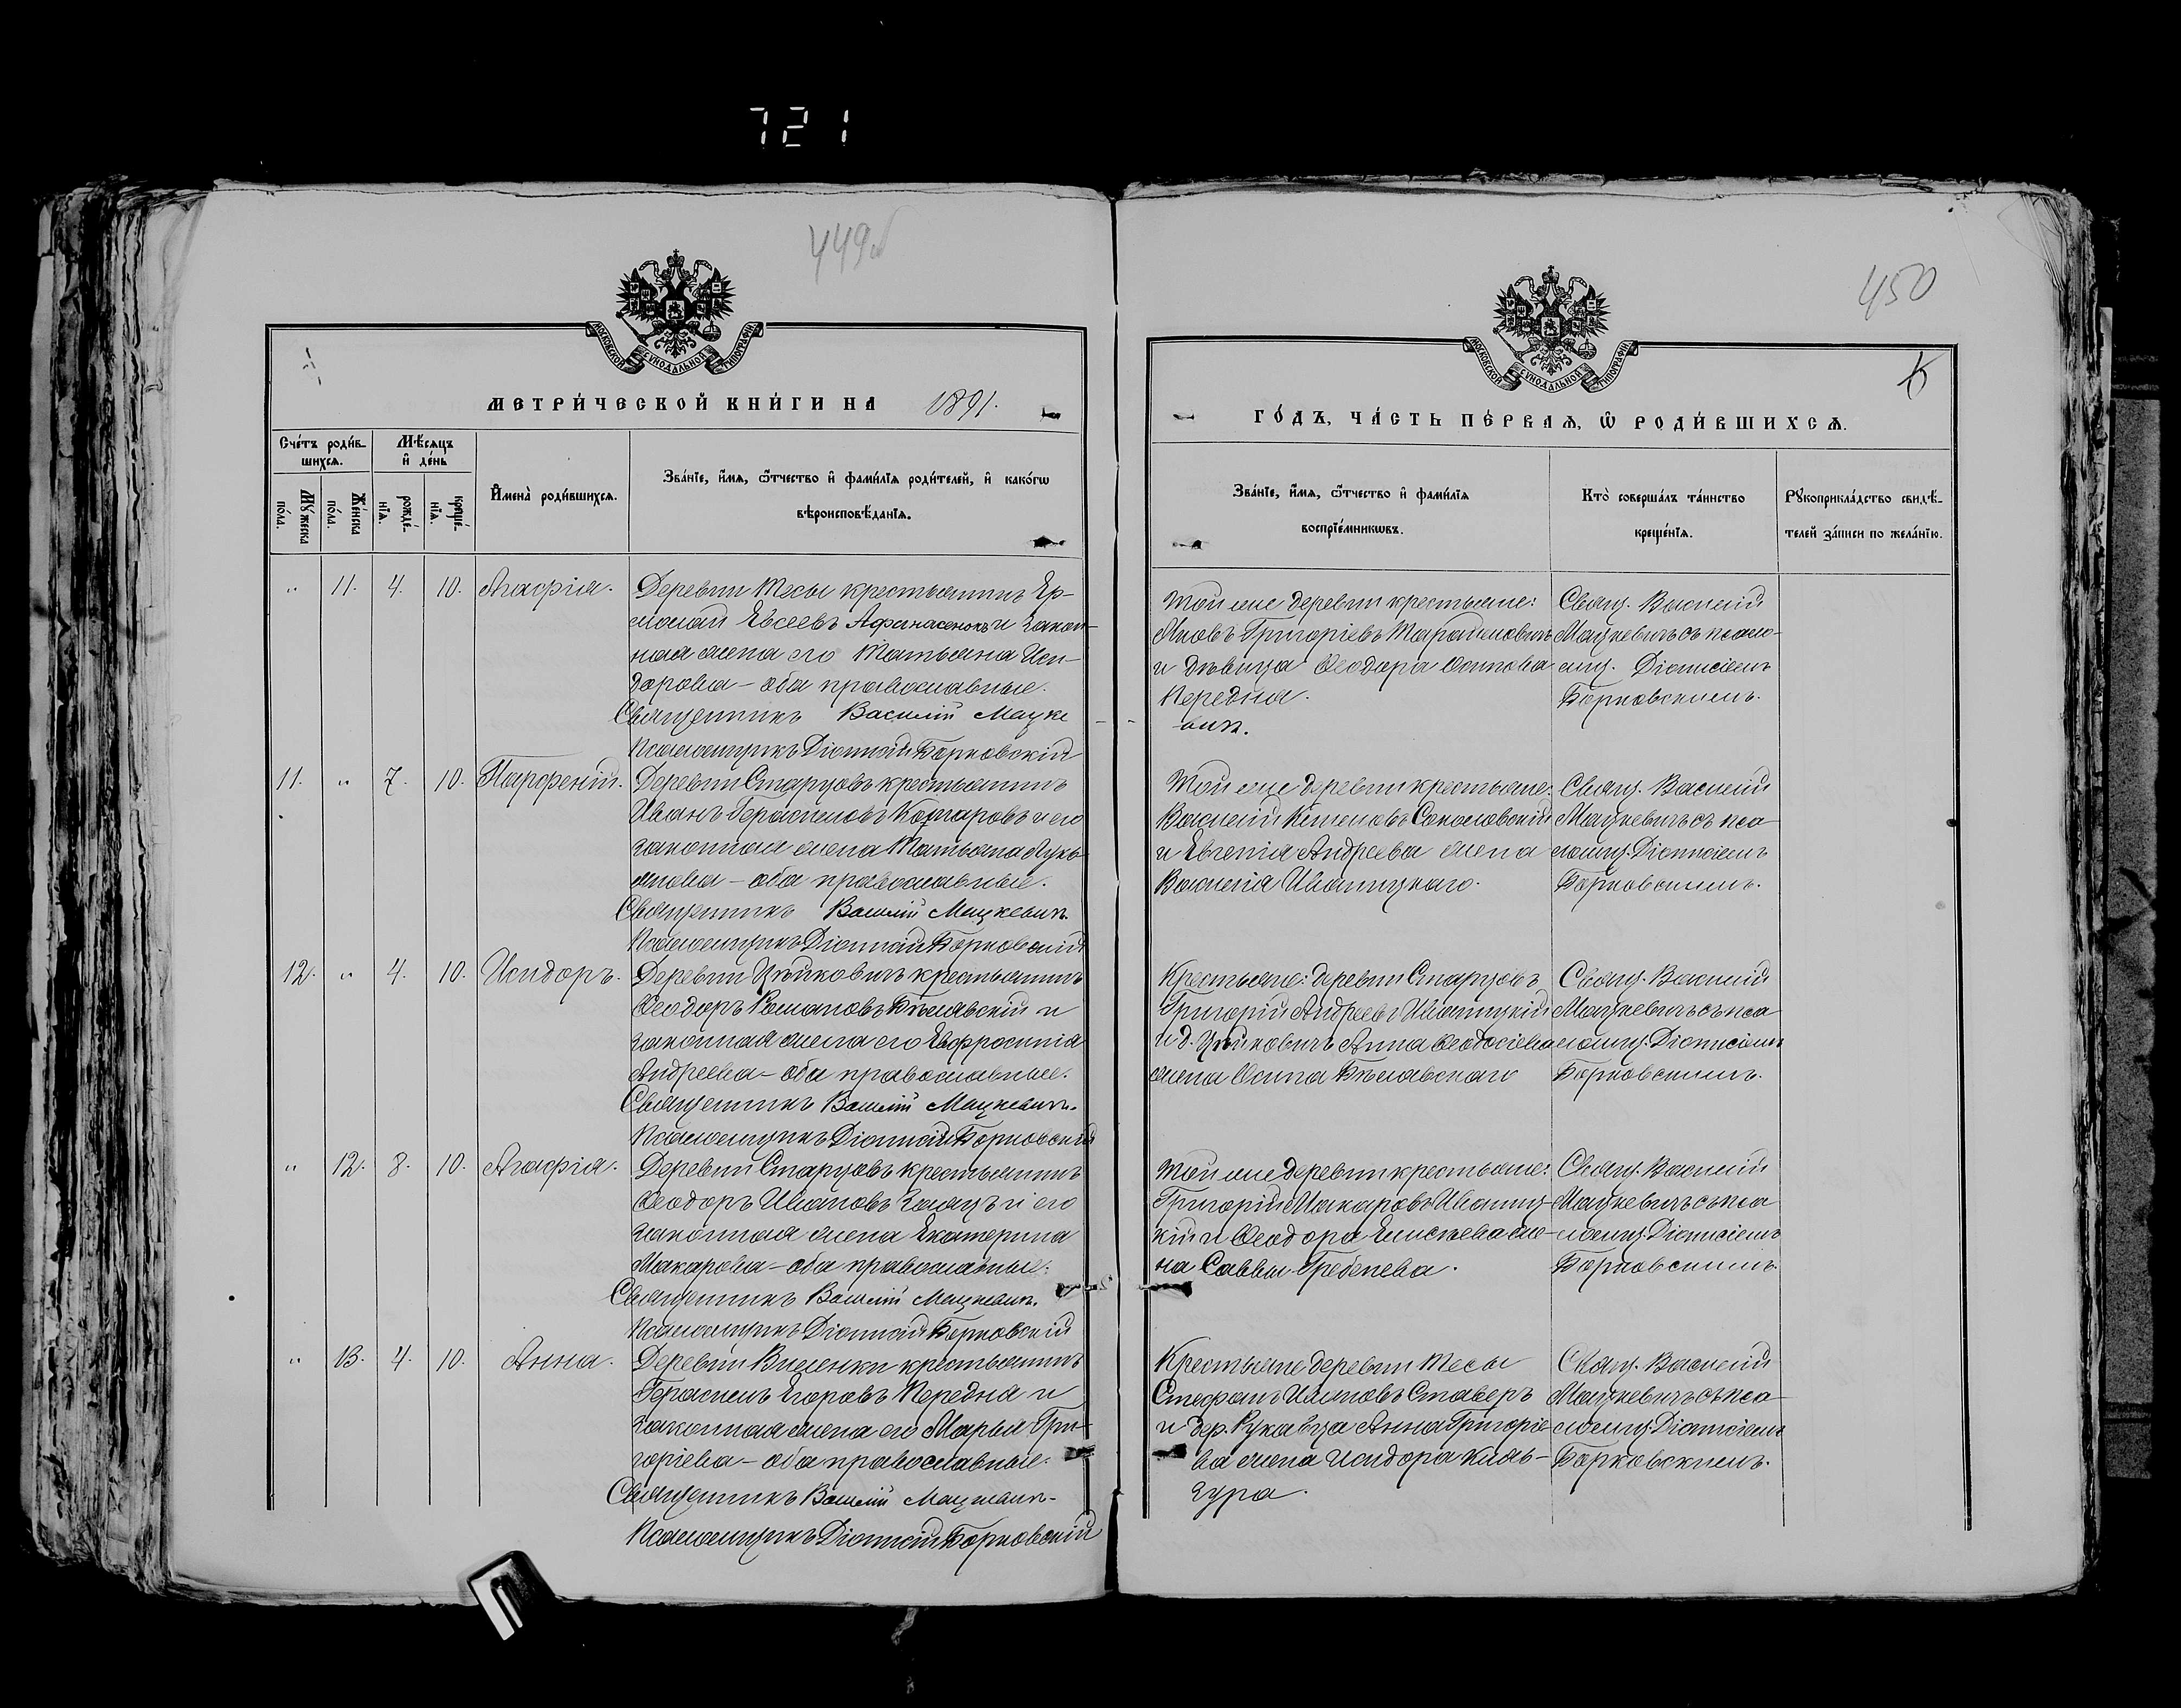 721
449об
450
МОСКОВСКОЙ СѴНОДАЛЬНОЙ ТИПОГРАФІИ
МОСКОВСКОЙ СѴНОДАЛЬНОЙ ТИПОГРАФІИ
МЕТРИ́ЧЕСКОЙ КНИ́ГИ НА 1891.
ГО́ДЪ, ЧА́СТЬ ПЕ́РВАЯ, Ѿ РОДИ́ВШИХСЯ.
Сче́тъ роди́в-
шихся.
Мѣ́сяцъ
и҆ де́нь
Мꙋ́жеска
по́ла.
Же́нска
по́ла.
рожде́-
нїѧ.
креще́-
нїѧ.
И҆мена̀ роди́вшихсѧ.
Зва́нїе, и҆́мѧ, ѻ҆́тчество и҆ фами́лїѧ роди́телей, и҆ како́гѡ
вѣроисповѣ́данїѧ.
Зва́нїе, и҆́мѧ, ѻ҆́тчество и҆ фами́лїѧ
воспрїе́мникѡвъ.
Кто̀ соверша́лъ та́инство
креще́нїѧ.
Рꙋкоприкла́дство свидѣ́-
телей за́писи по жела́нїю.
" 11. 4. 10. Агафія.
Деревни Тесы крестьянинъ Ер-
молай Евсеевъ Афанасенокъ и закон-
ная жена его Татьяна Иси-
дорова – оба православные.
Священникъ Василій Мацке
Псаломщикъ Діонисій Борковскій
Той же деревни крестьяне:
Яковъ Григоріевъ
и дѣвица Ѳеодора Осипова
Передня.
вичъ.
Свящ. Василій
Мацкевичъ съ псало-
мщ. Діонисіемъ
Борковскимъ.
11. " 7. 10. Парфеній.
Деревни Старцовъ крестьянинъ
Иванъ Герасимовъ и его
законная жена Татьяна Лукь-
янова – оба православные.
Священникъ Василій Мацкевичъ.
Псаломщикъ Діонисій Борковскій
Той же деревни крестьяне:
Василій Соколовскій
и Евгенія Андреева жена
Василія Иваницкаго.
Свящ. Василій
Мацкевичъ съ пса-
ломщ. Діонисіемъ
Борковскимъ.
12. " 4. 10. Исидоръ.
Деревни Цѣйковичъ крестьянинъ
Ѳеодоръ Романовъ Бѣлявскій и
законная жена его Евфросинія
Андреева – оба православные.
Священникъ Василій Мацкевичъ.
Псаломщикъ Діонисій Борковскій
Крестьяне: деревни Старцовъ
Григорій Андреевъ Иваницкій
и д. Цѣйковичъ Анна Ѳеодосіева
жена Осипа Бѣлявскаго
Свящ. Василій
Мацкевичъ съ пса-
ломщ. Діонисіемъ
Борковскимъ.
" 12. 8. 10. Агафія.
Деревни Старцовъ крестьянинъ
Ѳеодоръ Ивановъ Заяцъ и его
законная жена Екатерина
Макарова – оба православные.
Священникъ Василій Мацкевичъ.
Псаломщикъ Діонисій Борковскій
Той же деревни крестьяне:
Григорій Макаровъ Иваниц-
кій и Ѳеодора Елисѣева же-
на Саввы Гребенева.
Свящ. Василій
Мацкевичъ съ пса-
ломщ. Діонисіемъ
Борковскимъ.
" 13. 4. 10. Анна.
Деревни Виленки крестьянинъ
Герасимъ Егоровъ Передня и
законная жена его Марья Гри-
горіева – оба православные.
Священникъ Василій Мацкевичъ.
Псаломщикъ Діонисій Борковскій
Крестьяне деревни Тесы
Стефанъ Ставеръ
и дер. Рукавца Анна Григоріе-
ва жена Исидора Кинь-
зура.
Свящ. Василій
Мацкевичъ съ пса-
ломщ. Діонисіемъ
Борковскимъ.